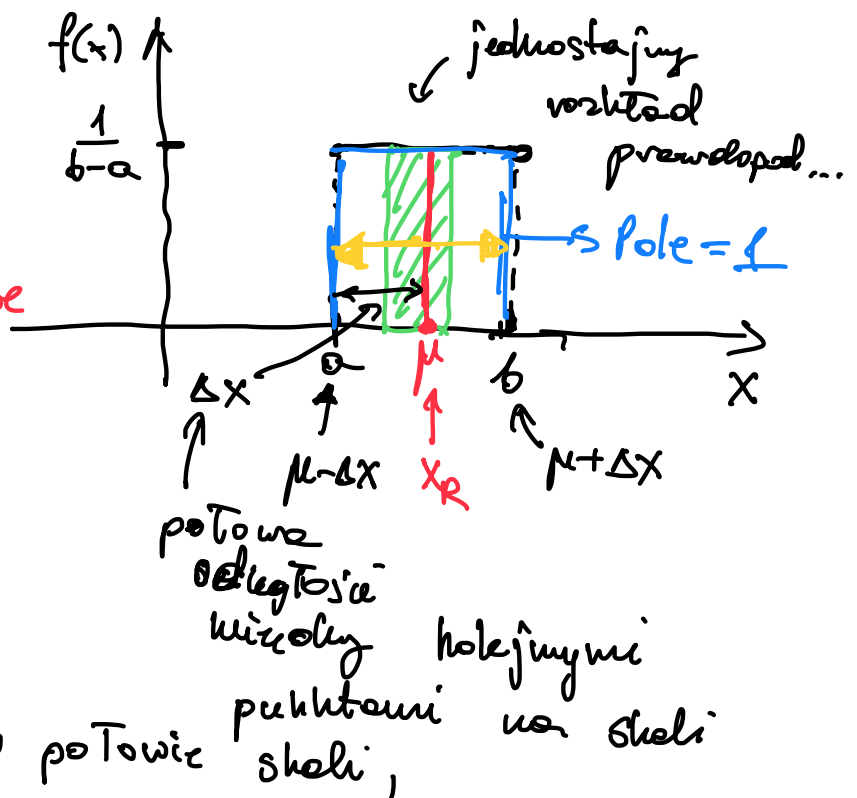 f(x)
jednostajny
rozkład
prawdopod...
1
b-a
Pole = 1
a
μ
b
x
Δx
μ-Δx
x_R
μ+Δx
połowa
odległości
między kolejnymi
punktami na skali
połowie skali,